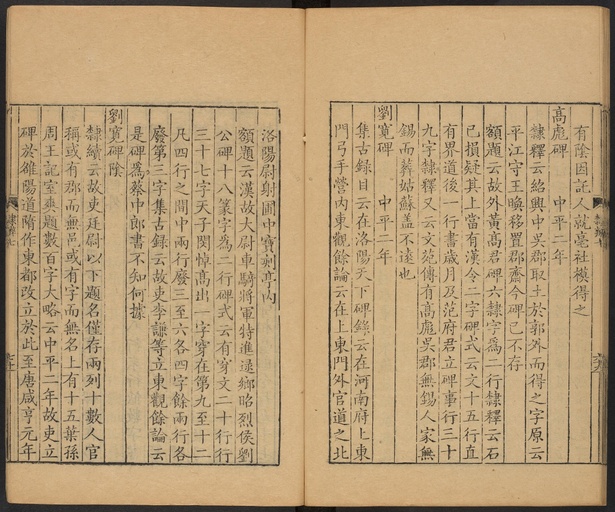 有陰因託人就亳社橅得之
高彪碑　中平二年
隸釋云紹興中吳郡取土於郭外而得之字原云
平江守王㬇移置郡齋今碑已不存
額題云故外黃高君碑六隸字為二行隸釋云石
已損疑其上當有漢令二字碑式云文十五行直
有界道後一行書歲月及范府君立碑事行三十
九字隸釋又云文苑傳有高彪吳郡無錫人家無
錫而葬姑蘇蓋不遠也
劉寬碑　中平二年
集古錄目云在洛陽天下碑錄云在河南府上東
門弓手營內東觀餘論云在上東門外官道之北
洛陽尉射圃中寶刹亭內
額題云漢故大尉車騎將軍特進逯鄉昭烈侯劉
公碑十八篆字為二行碑式云有穿文二十行行
三十七字天子閔悼高出一字穿在第九至十二
凡四行之間中兩行廢三至六各四字餘兩行各
廢第三字集古錄云故吏李謙等立東觀餘論云
是碑為蔡中郎書不知何據
劉寬碑陰
隸續云故吏廷尉以下題名僅存兩列十數人官
稱或有郡而無邑或有字而無名上有十五葉孫
周王記室爽題數百字大略云中平二年故吏立
碑於雒陽道隋作東都改立於此至唐咸亨元年